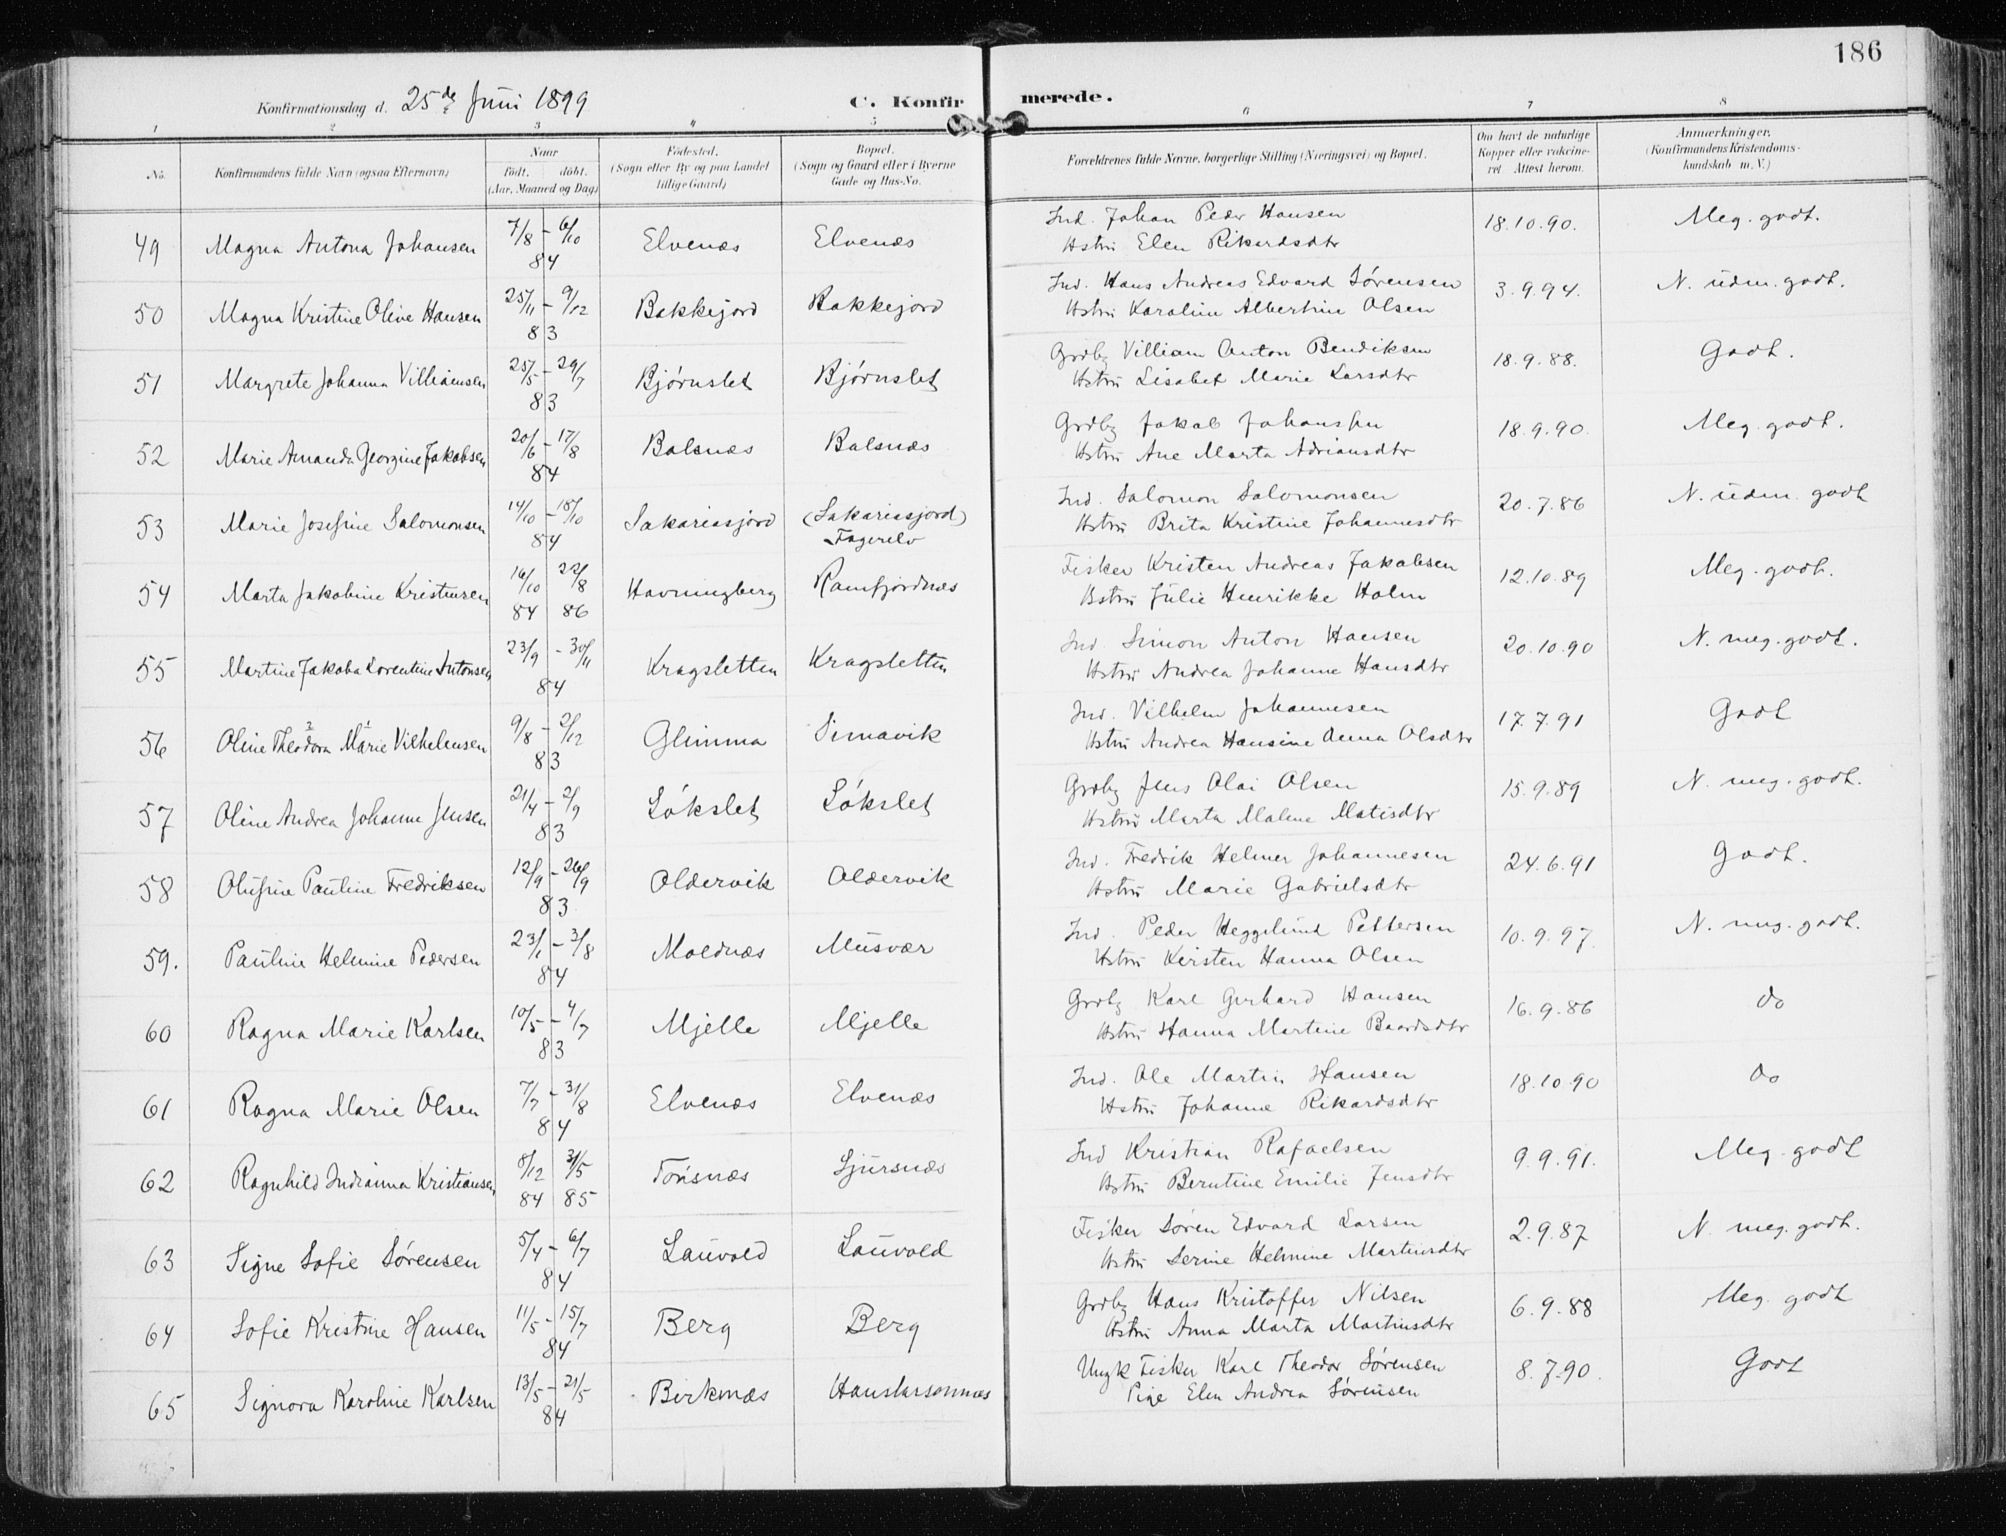 186
Konfirmationsdag d. 25de Juni 1899
C. Konfirmerede.
1 2 3 4 5 6 7 8
No. Konfirmandens fulde Navn (ogsaa Efternavn) Naar født. døbt. (Aar, Maaned og Dag) Fødested. (Sogn eller By og paa Landet tillige Gaard) Bopæl. (Sogn og Gaard eller i Byerne Gade og Hus-No. Forældrenes fulde Navne, borgerlige Stilling (Næringsvei) og Bopæl. Om havt de naturlige Kopper eller vaccineret Attest herom. Anmærkninger. (Konfirmandens Kristendomskundskab m. V.)
49 Magna Antona Johansen 7/8 - 6/10 84 Elvenæs Elvenæs Ind. Johan Peder Hansen 18.10.90. Meg. godt.
Hstru Elen Rikardsdtr
50 Magna Kristine Olive Hansen 25/11 - 9/12 83 Bakkejord Bakkejord Ind. Hans Andreas Edvard Sørensen 3.9.94. N. udm. godt.
Hstru Karoline Albertine Olsen
51 Margrete Johanna Villiamsen 25/5 - 29/7 83 Bjørnslet Bjørnslet Grdbr Villiam Anton Bendiksen 18.9.88. Godt.
Hstru Lisabet Marie Larsdtr
52 Marie Amanda Georgine Jakobsen 20/6 - 17/8 84 Balsnæs Balsnæs Grdbr Jakob Johansen 18.9.90. Meg. godt.
Hstru Ane Marta Adriansdtr
53 Marie Josefine Salomonsen 14/10 - 18/10 84 Sakariasjord (Sakariasjord) Fagerelv Ind. Salomon Salomonsen 20.7.86 N. udm. godt
Hstru Brita Kristine Johannesdtr
54 Marta Jakobine Kristensen 16/10 84 22/8 86 Havningberg Ramfjordnæs Fisker Kristen Andreas Jakobsen 12.10.89 Meg. godt.
Hstru Julie Henrikke Holm
55 Martine Jakoba Lorentine Antonsen 23/9 - 30/11 84 Kragsletten Kragsletten Ind. Simon Anton Hansen 20.10.90 N. meg. godt.
Hstru Andrea Johanne Hansdtr
56 Oline Theodora Marie Vilhelmsen 9/8 - 2/12 83 Glimma Simavik Ind. Vilhelm Johannesen 17.7.91 Godt
Hstru Andrea Hansine Anna Olsdtr
57 Oline Andrea Johanne Jensen 21/4 - 2/9 83 Løkslet Løkslet Grdbr Jens Olai Olsen 15.9.89 N. meg. godt.
Hstru Marta Malene Matisdtr
58 Olufine Pauline Fredriksen 12/9 - 26/9 83 Oldervik Oldervik Ind. Fredrik Helmer Johannesen 24.6.91 Godt.
Hstru Marie Gabrielsdtr
59. Pauline Helmine Pedersen 23/1 - 3/8 84 Moldnæs Musvær Ind. Peder Heggelund Pettersen 10.9.97. N. meg. godt.
Hstru Kirsten Hanna Olsen
60 Ragna Marie Karlsen 10/5 - 4/7 83 Mjelle Mjelle Grdbr Karl Gerhard Hansen 16.9.86 do
Hstru Hanna Martine Baardsdtr
61 Ragna Marie Olsen 7/7 - 31/8 84 Elvenæs Elvenæs Ind. Ole Martin Hansen 18.10.90 do
Hstru Johanne Rikardsdtr
62 Ragnhild Indianna Kristiansen 8/12 84 31/5 85 Tønsnæs Sjursnæs Ind Kristian Rafaelsen 9.9.91. Meg. godt
Hstru Berntine Emilie Jensdtr
63 Signe Sofie Sørensen 5/4 - 6/7 84 Lauvold Lauvold Fisker Søren Edvard Larsen 2.9.87 N. meg. godt.
Hstru Serine Helmine Martinsdtr
64 Sofie Kristine Hansen 11/5 - 15/7 84 Berg Berg Grdbr Hans Kristoffer Nilsen 6.9.88 Meg. godt
Hstru Anna Marta Martinsdtr
65 Signora Karoline Karlsen 13/5 - 21/5 84 Birknæs Hanslarsonnæs Ungk Fisker Karl Theodor Sørensen 8.7.90. Godt
Pige Elen Andrea Sørensen